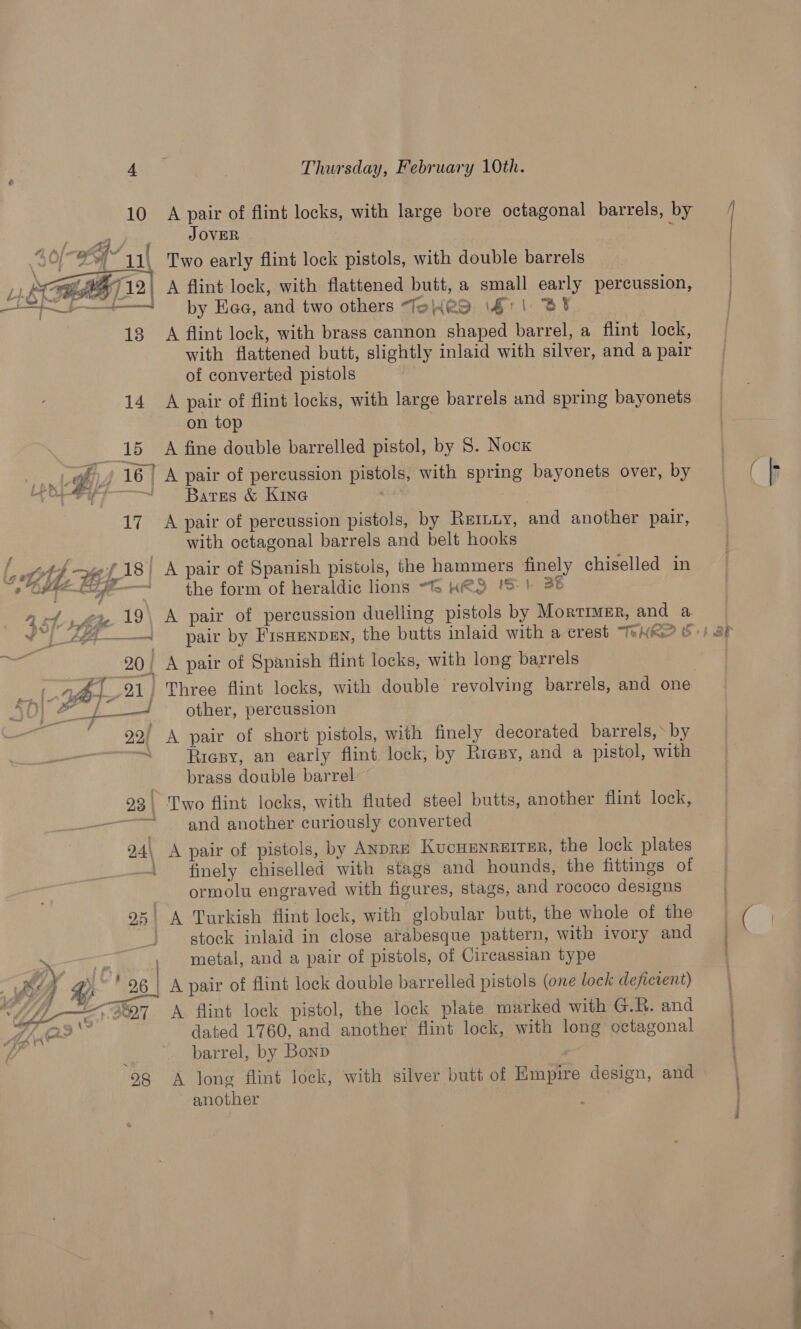 4 Thursday, February 10th.
10 A pair of flint locks, with large bore octagonal barrels, by
JOVER
11 Two early flint lock pistols, with double barrels
12 A flint lock, with flattened butt, a small early percussion,
by EGG, and two others
13 A flint lock, with brass cannon shaped barrel, a flint lock,
with flattened butt, slightly inlaid with silver, and a pair
of converted pistols
14 A pair of flint locks, with large barrels and spring bayonets
on top
15 A fine double barrelled pistol, by S. NOCK
16 A pair of percussion pistols, with spring bayonets over, by
BATES & KING
17 A pair of percussion pistols, by REILLY, and another pair,
with octagonal barrels and belt hooks
18 A pair of Spanish pistols, the hammers finely chiselled in
the form of heraldic lions
19 A pair of percussion duelling pistols by MORTIMER, and a
pair by FISHENDEN, the butts inlaid with a crest
20 A pair of Spanish flint locks, with long barrels
21 Three flint locks, with double revolving barrels, and one
other, percussion
22 A pair of short pistols, with finely decorated barrels, by
RIGBY, an early flint lock, by RIGBY, and a pistol, with
brass double barrel
23 Two flint locks, with fluted steel butts, another flint lock,
and another curiously converted
24 A pair of pistols, by ANDRE KUCHENREITER, the lock plates
finely chiselled with stags and hounds, the fittings of
ormolu engraved with figures, stags, and rococo designs
25 A Turkish flint lock, with globular butt, the whole of the
stock inlaid in close arabesque pattern, with ivory and
metal, and a pair of pistols, of Circassian type
26 A pair of flint lock double barrelled pistols (one lock deficient)
27 A flint lock pistol, the lock plate marked with G.R. and
dated 1760, and another flint lock, with long octagonal
barrel, by BOND
28 A long flint lock, with silver butt of Empire design, and
another